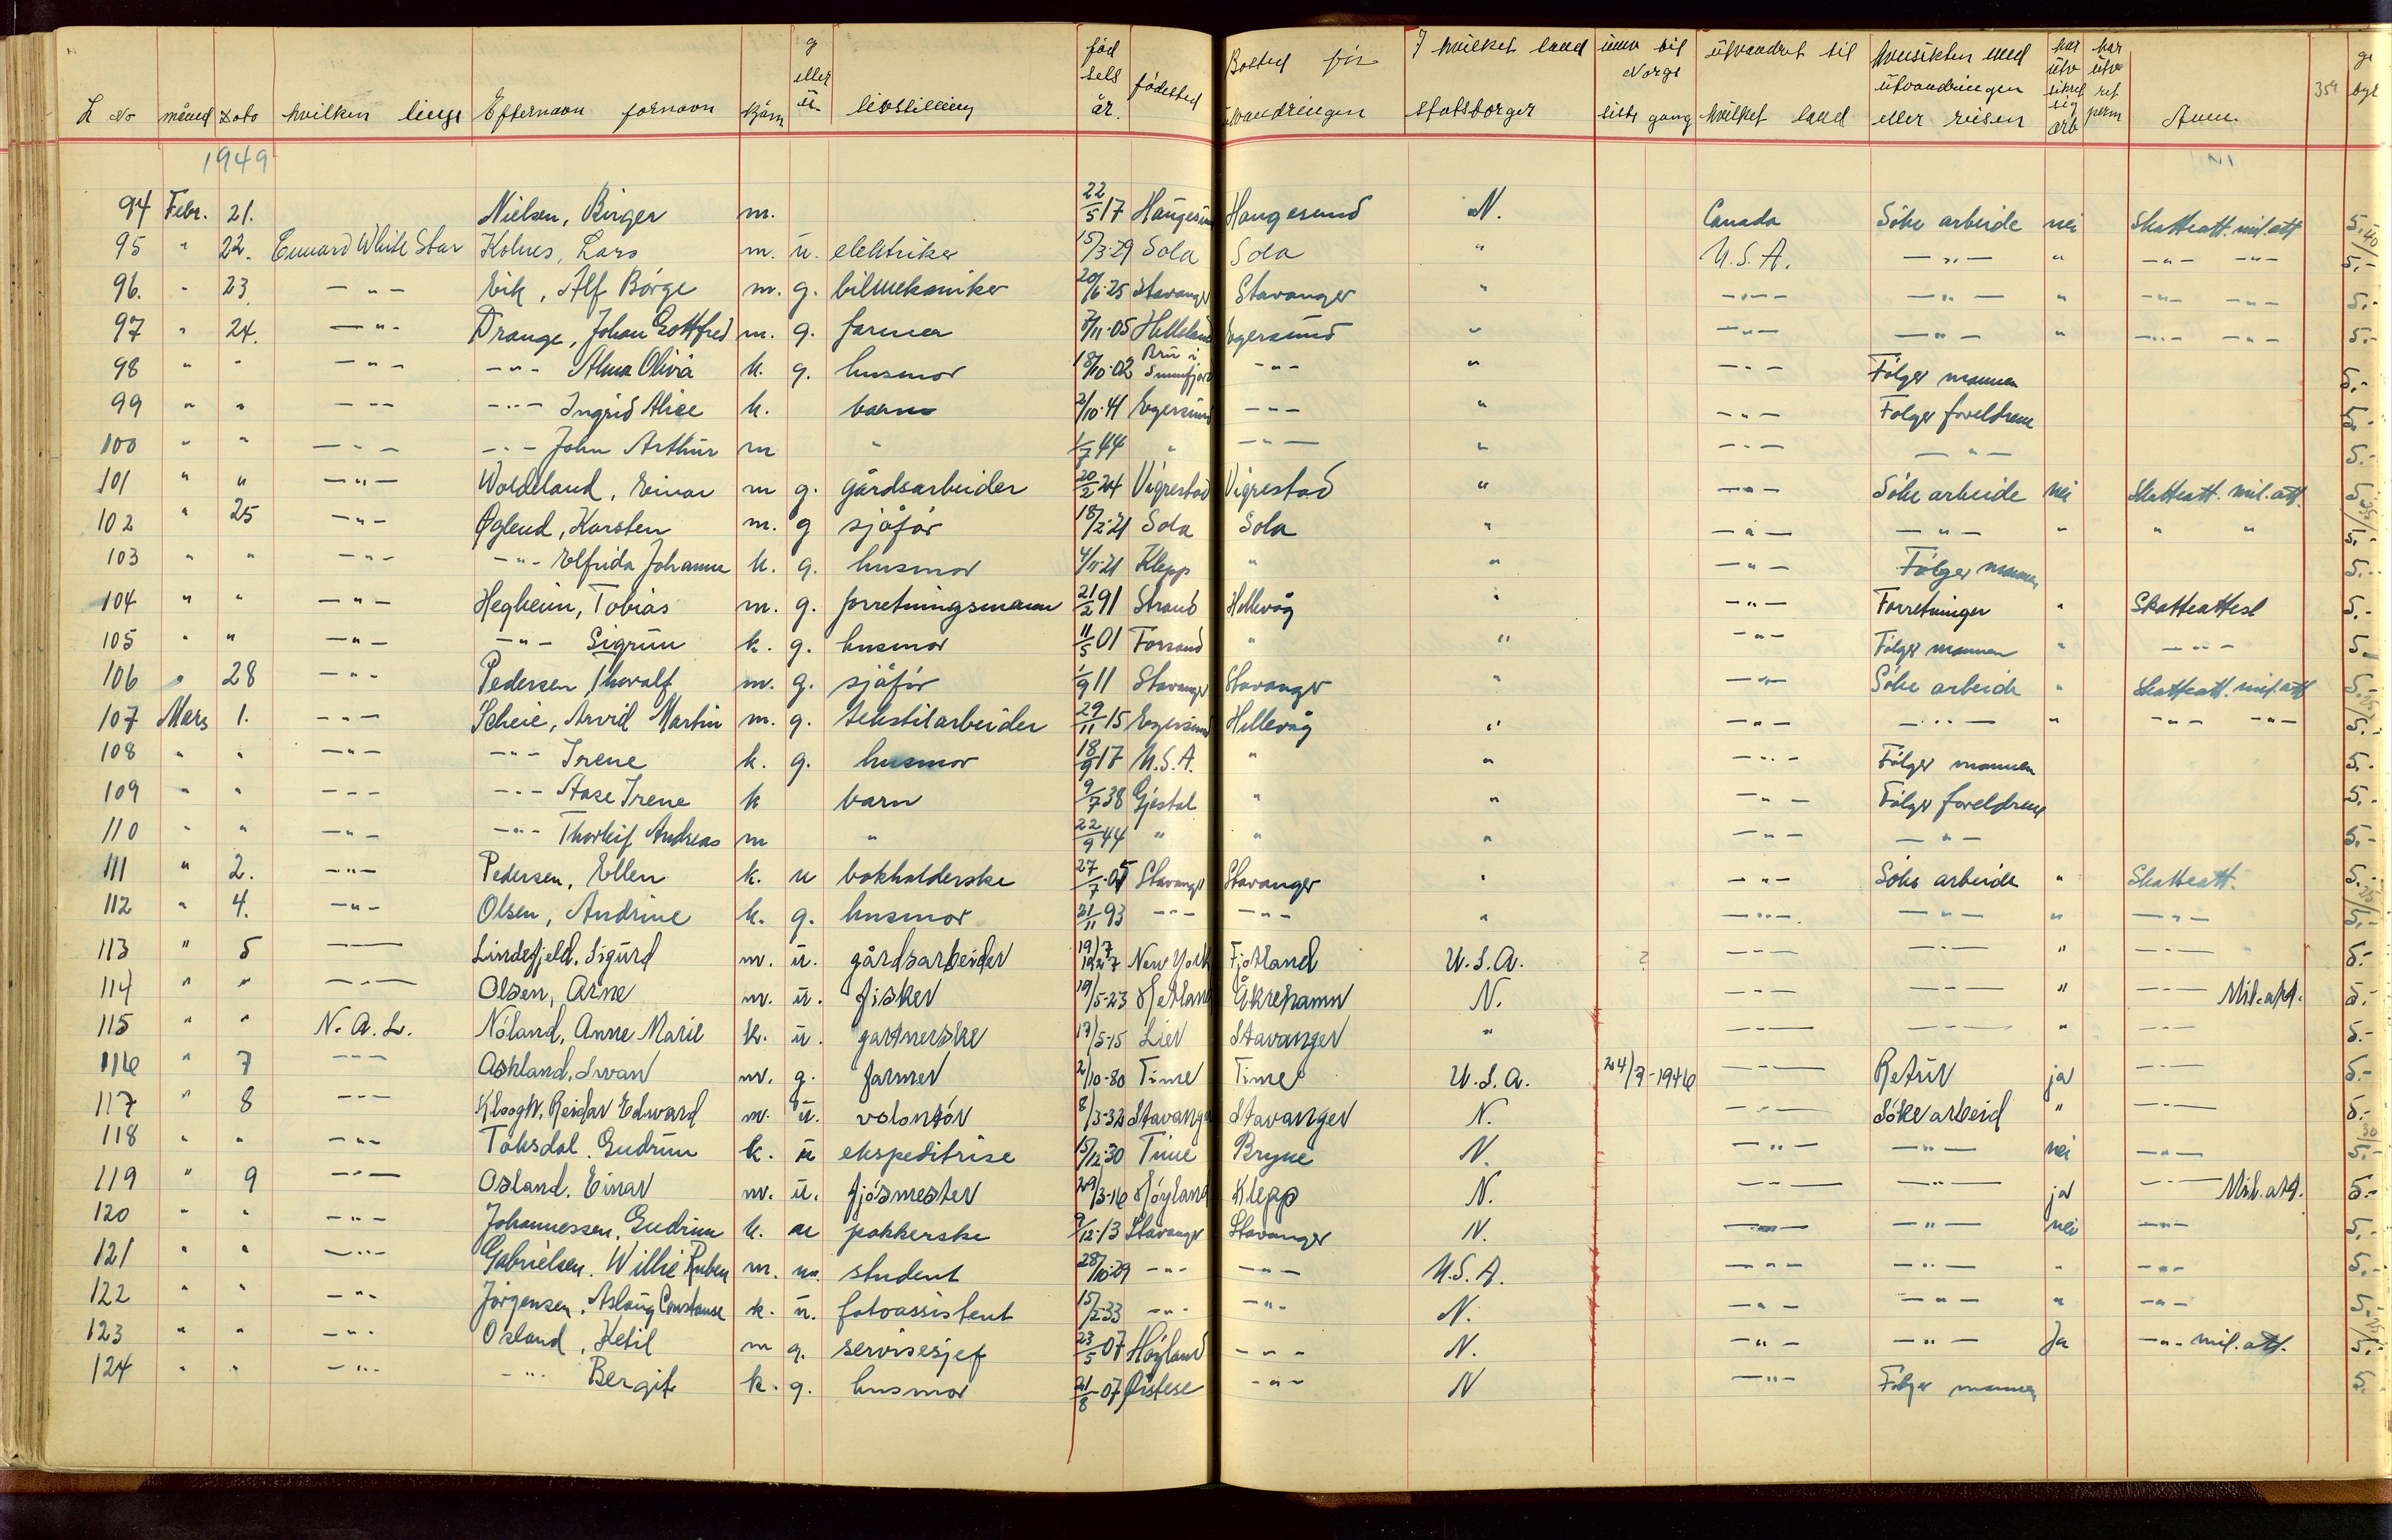 L No måned Dato hvilken linje Efternavn fornavn kjønn g eller ü. livstilling fød sels år. fødested Bosted før utvandringen I hvilket land statsborger innv til Norge siste gang ütvandret til hvilket land hensikten med ütvandringen eller reisen har ütv sikret sig arb har ütv ret perm Anm. 359
1949
94 Febr. 21. Nielsen, Birger m. 22/5 17 Haugesund Haugesund N. Canada Söke arbeide nei Skatteatt. mil. att 5,-
95 " 22. Cunard White Star Kolnes, Lars m. ü. elektriker 15/3-29 Sola Sola " U.S.A. -"- " -"- -"- 5,-
96. " 23 -"- Eik, Alf Börge m. g. bilmekaniker 20/6-25 Stavanger Stavanger " -"- -"- " -"- -"- 5.-
97 " 24. -"- Drange, Johan Gottfred m. g. farmer 7/11-05 Helleland Egersund " -"- -"- " -"- -"- 5.-
98 " " -"- -"- Alma Olivia k. g. husmor 18/10-02 Bru i Sunnfjord -"- " -"- Følger mannen 5.-
99 " " -"- -"- Ingrid Alice k. barn 2/10-41 Egersund -"- " -"- Følger foreldrene 5.-
100 " " -"- -"- John Arthur m " 1/7 44 " -"- " -"- -"- 5.-
101 " " -"- Woldeland, Einar m g. gårdsarbeider 20/2 24 Vigrestad Vigrestad " -"- Söke arbeide nei Skatteatt. mil. att. 5
102 " 25 -"- Øglend, Karsten m. g sjåfør 18/2-21 Sola Sola " -"- -"- " " " 5.-
103 " " -"- -"- Elfrida Johanne k. g. husmor 4/11-21 Klepp " " -"- Følger mannen 5.-
104 " " -"- Hegheim, Tobias m. g. forretningsmann 21/2 91 Strand Hillevåg " -"- Forretninger " Skatteattest 5.-
105 " " -"- -"- Sigrun k. g. husmor 11/5 01 Forsand " " -"- Følger mannen " -"- 5.-
106 " 28 -"- Pedersen, Thoralf m. g. sjåfør 1/9 11 Stavanger Stavanger " -"- Söke arbeide " Skatteatt. mil. att 5.-
107 Mars 1. -"- Scheie, Arvid Martin m. g. tekstilarbeider 29/11 15 Egersund Hillevåg " -"- -"- " -"- -"- 5.-
108 " " -"- -"- Irene k. g. husmor 18/9 17 U.S.A. " " -"- Følger mannen 5.-
109 " " -"- -"- Aase Irene k barn 9/7 38 Gjestal " " -"- Følger foreldrene 5.-
110 " " -"- -"- Thorleif Andreas m " 22/9 44 " " " -"- -"- 5.-
111 " 2. -"- Pedersen, Ellen k. u bokholderske 27/7-05 Stavanger Stavanger " -"- Söke arbeide " Skatteatt. 5.-
112 " 4. -"- Olsen, Andrine k. g. husmor 21/11 93 -"- -"- " -"- -"- " -"- 5,-
113 " 5 -"- Lindefjeld, Sigurd m. ü. gårdsarbeider 19/7 1927 New York Fjotland U.S.A. ? -"- -"- " -"- 5.-
114 " " -"- Olsen, Arne m. ü. fisker 19/5-23 Hetland Åkrehamn N. -"- -"- " -"- Mil. att. 5.-
115 " " N.A.L. Nöland, Anne Marie k. ü. gartnerske 17/5-15 Lier Stavanger " -"- -"- " -"- 5.-
116 " 7 -"- Askland, Swan m. g. farmer 2/10-80 Time Time U.S.A. 24/7-1946 -"- Retur ja -"- 5.-
117 " 8 -"- Kloogh, Reidar Edward m. ü. volontör 8/3-32 Stavanger Stavanger N. -"- Söke arbeid " -"- 5.-
118 " " -"- Taksdal. Gudrun k. ü ekspeditrise 15/12-30 Time Bryne N. -"- -"- nei -"- 5.-
119 " 9 -"- Osland. Einar m. ü. fjösmester 29/3-16 Höyland Klepp N. -"- -"- ja -"- Mil. att. 5.-
120 " " -"- Johannessen, Gudrun k. u pakkerske 9/12-13 Stavanger Stavanger N. -"- -"- nei -"- 5.-
121 " " -"- Gabrielsen. Willie Ruben m. u. student 28/10-29 -"- -"- U.S.A. -"- -"- " -"- 5.-
122 " " -"- Jörgensen, Aslaug Constanse k. ü. fotoassistent 15/2-33 -"- -"- N. -"- -"- " -"- 5.-
123 " " -"- Osland, Ketil m g. servisesjef 23/5 07 Höyland -"- N. -"- -"- Ja -"- mil. att. 5.-
124 " " -"- -"- Bergit k. g. husmor 21/8-07 Øistese -"- N -"- Følger mannen 5.